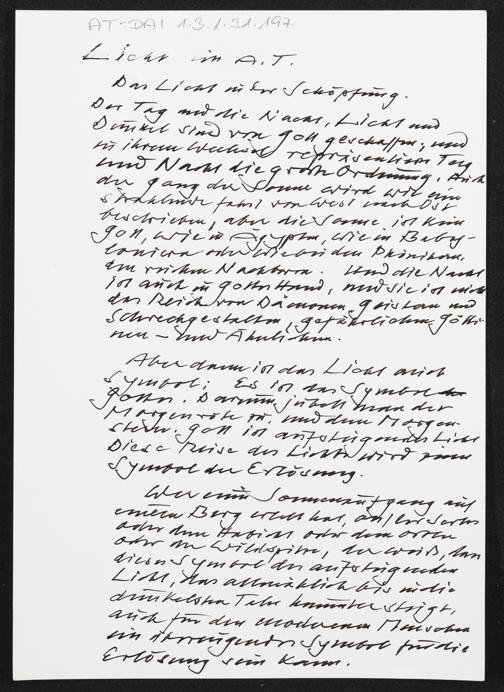 AT-DAI 1.3.1.31.197
Licht im A.T.
Das Licht in der Schöpfung.
Der Tag und die Nacht, Licht und
Dunkel sind von Gott geschaffen, und
in ihrem Wechsel repräsentieren Tag
und Nacht die große Ordnung. Auch
der Gang der Sonne wird wie eine
strahlende Fahrt von West nach Ost
beschrieben, aber die Sonne ist kein
Gott, wie in Ägypten, wie in Baby-
lonien oder wie bei den Phöniziern,
den reichen Nachbarn. Und die Nacht
ist auch in Gottes Hand, und sie ist nicht
das Reich von Dämonen, Geistern und
Schreckgestalten, gefährlichen Götti-
nen - und Ähnlichem.
Aber dann ist das Licht auch
Symbol: Es ist das Symbol
Gottes. Darum jubelt man der
Morgenröte zu, und dem Morgen-
stern. Gott ist aufsteigendes Licht
Diese Reise des Lichts wird zum
Symbol der Erlösung.
Wer einen Sonnenaufgang auf
einem Berg erlebt hat, auf der
oder dem Habicht oder dem Ortler
oder der Wildspitze, der weiß, dass
dieses Symbol des aufsteigenden
Licht, das allmählich bis in die
dunkelsten Täler hinunter steigt,
auch für den modernen Menschen
ein Symbol für die
Erlösung sein kann.